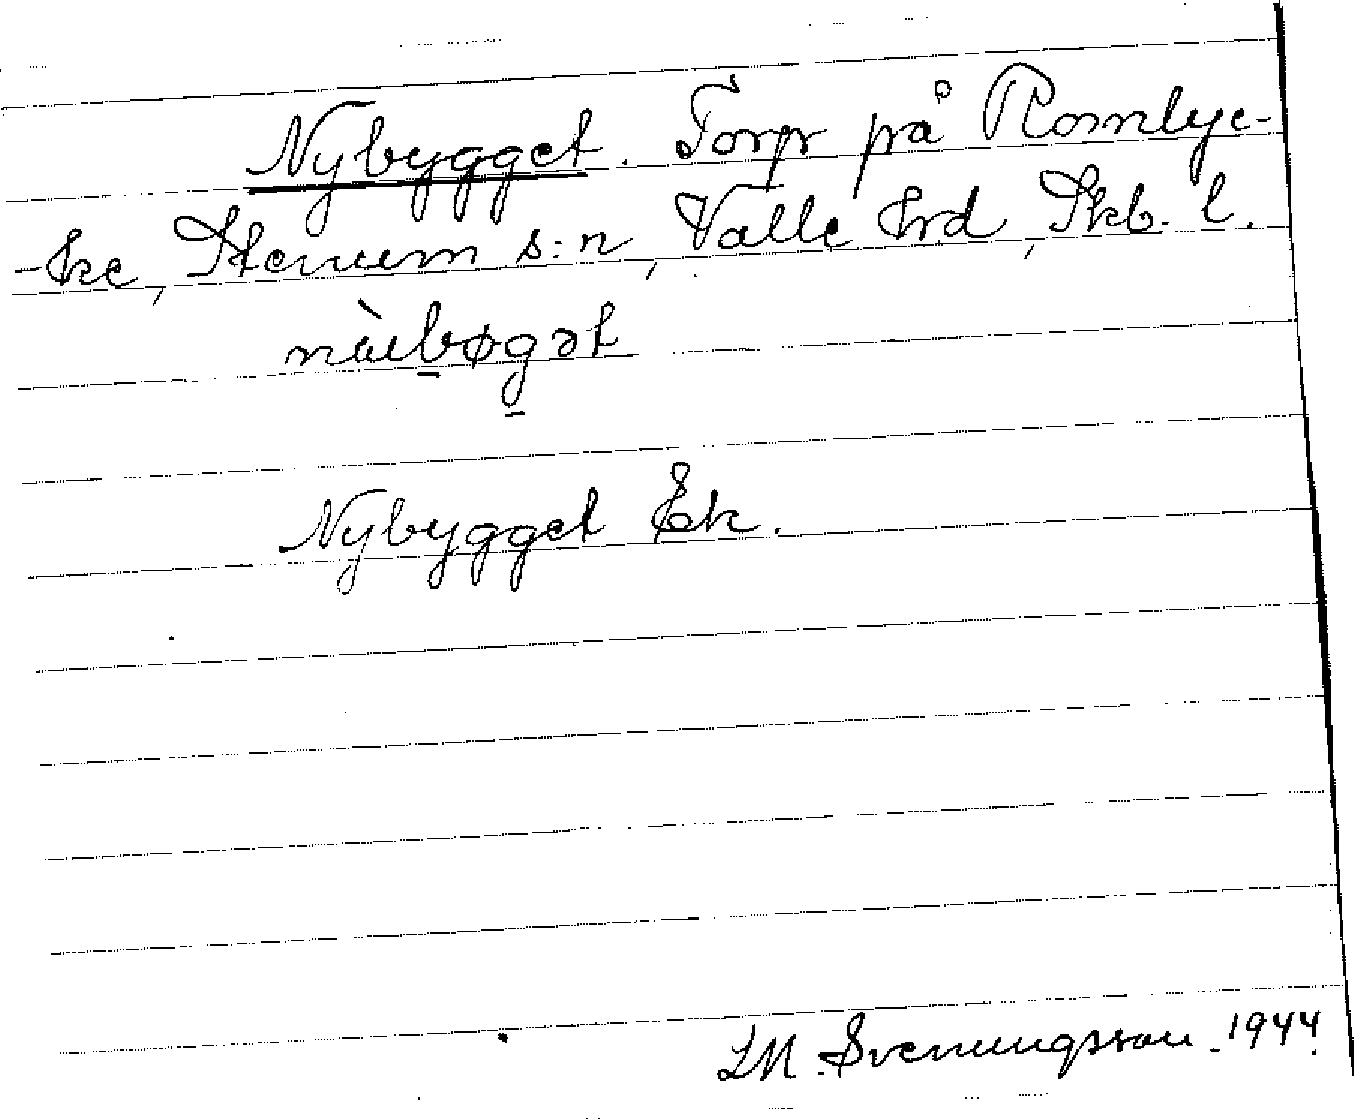 Nybygget. Torp på Romlyc-
-ke, Stenum s:n, Valle hrd, Skb. l.
nàebøgət
Nybygget Ek.
LM. Svenungsson 1944.